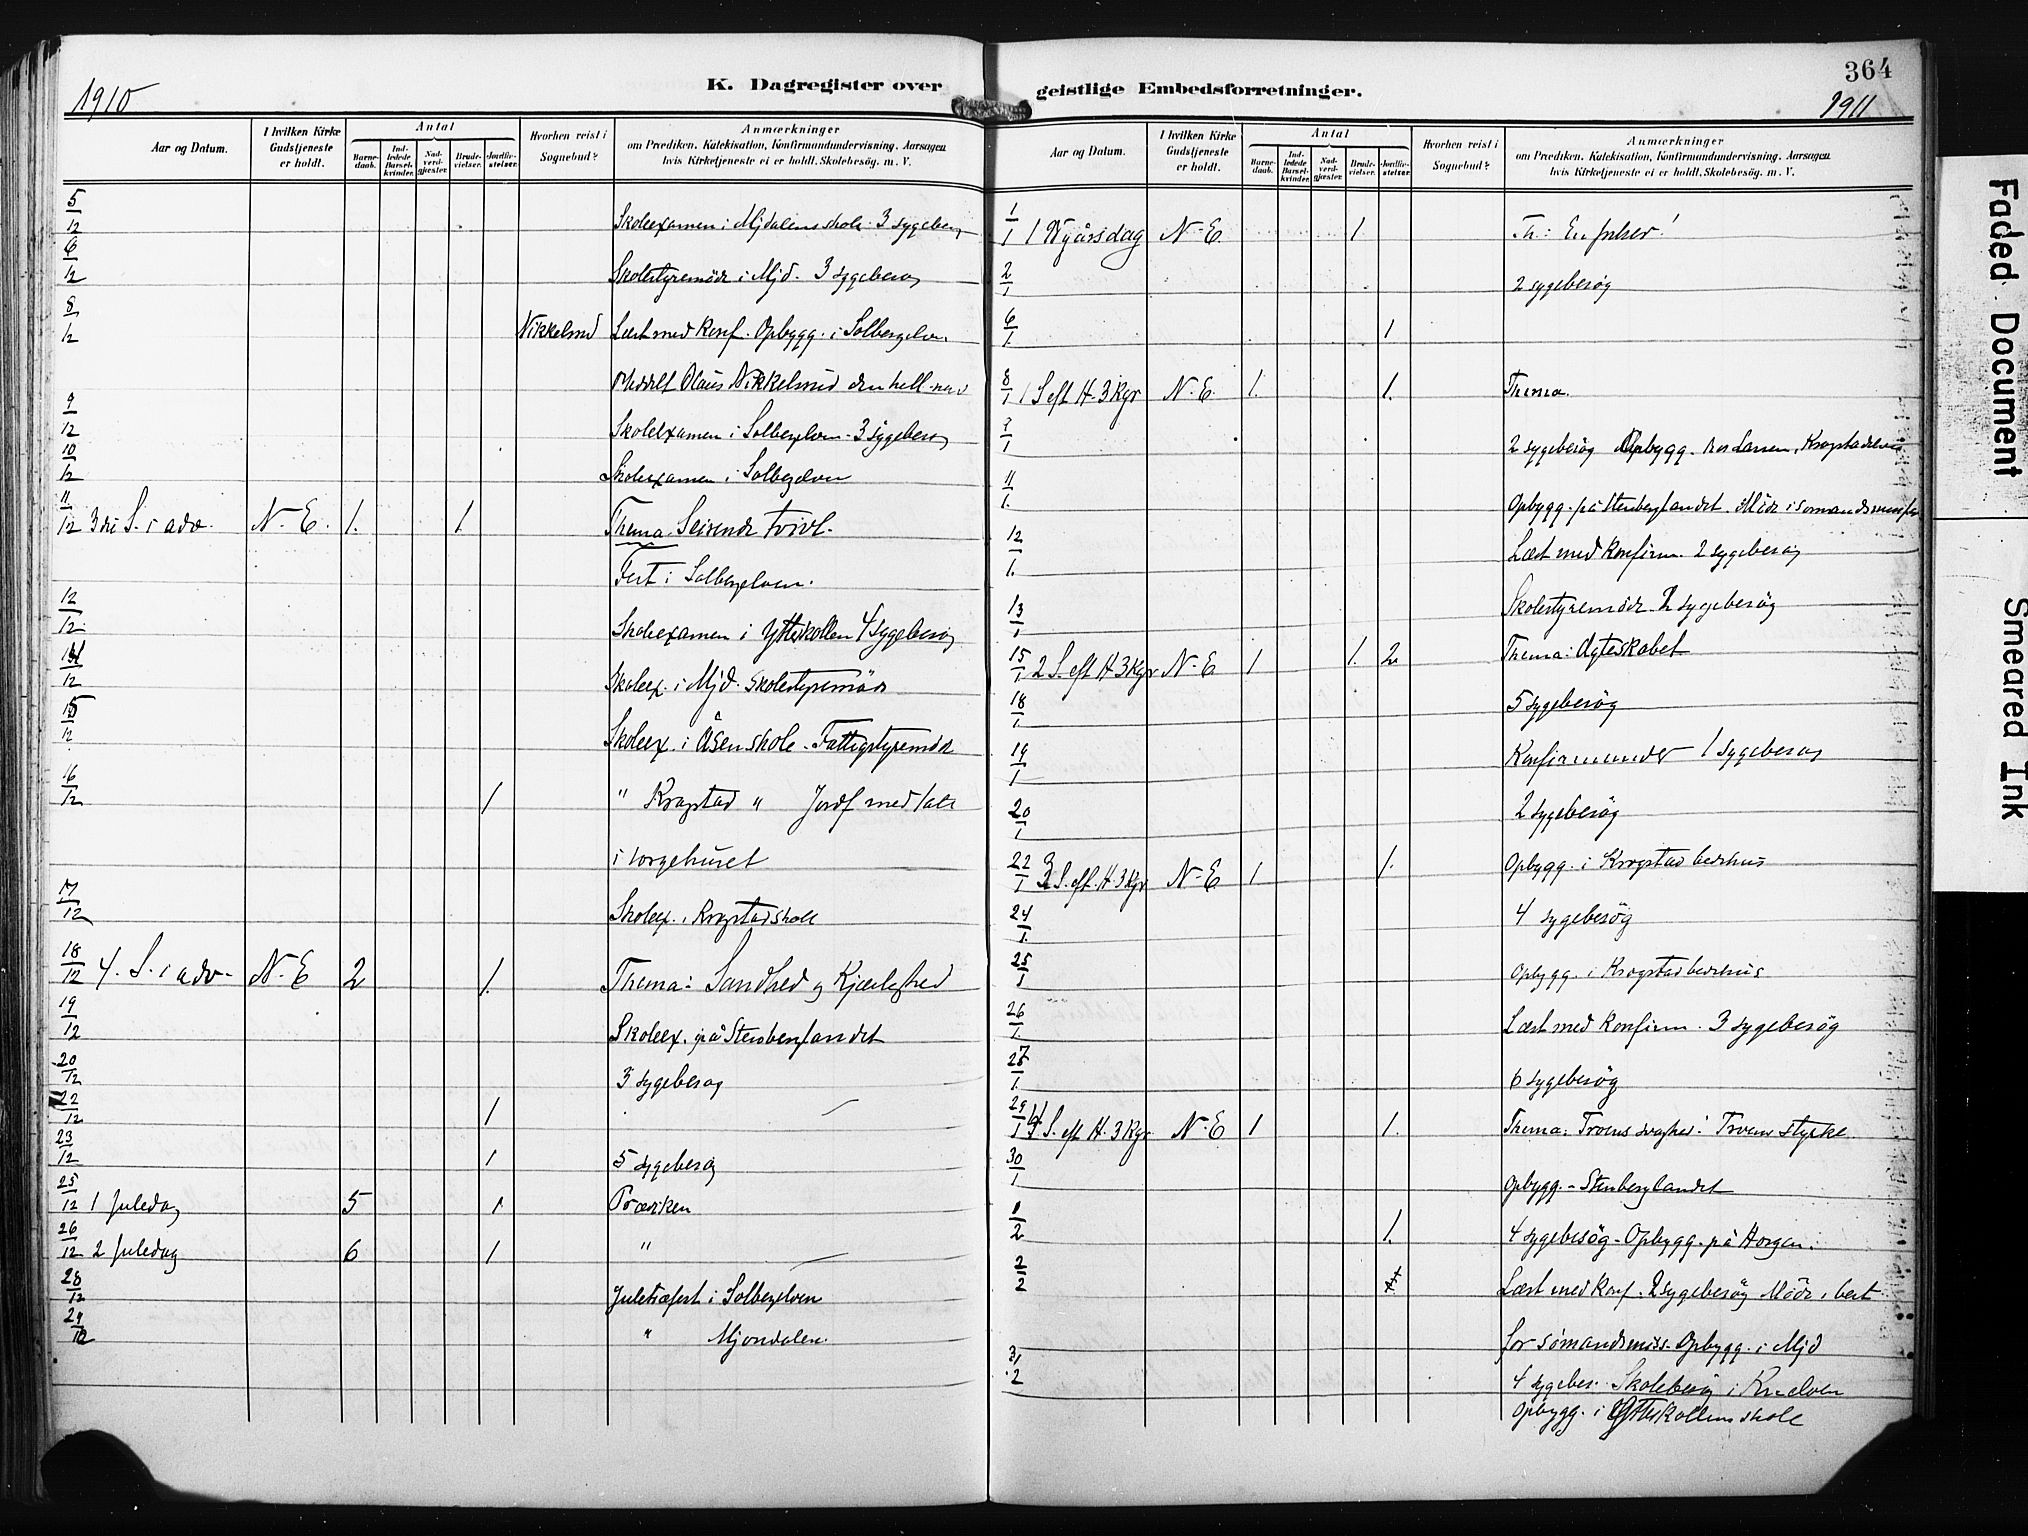 1910
K. Dagregister over
Aar og Datum.
I hvilken Kirke Gudstjeneste er holdt.
Antal
Barne-daab.
Ind-ledede Barsel-kvinder.
Nad-verd-gjæster.
Brude-vielser.
Jordfæ-stelser.
Hvorhen reist i Sognebud?
Anmærkninger
om Prædiken, Katekisation, Konfirmandundervisning, Aarsagen
hvis Kirketjeneste ei er holdt, Skolebesög. m. V.
5/12 Skoleexamen i Mjdalens skole 3 sygebesøg
6/12 Skolestyremöde i Mjd. 3 sygebesøg
8/12 Nikkelsrud Læst med konf. Opbygg. i Solbergelven
Meddelt Olaus Nikkelsrud den hell. nad
9/12 Skoleexamen i Solbergelven 3 sygebesøg
10/12 Skoleexamen i Solbergelven
11/12 3die S. i adv. N. E. 1. 1. Thema Seirende tvivl.
Fest i Solbergelven.
12/12 Skoleexamen i Ytterkollen 4 sygebesøg
14/12 Skoleex. i Mjd. Skolestyremöde
15/12 Skoleex. i Åsen skole. Fattigstyremöde
16/12 1 " Krogstad " Jordf med tale
i sorgehuset
17/12 Skoleex. i Krogstad skole
18/12 4. S. i adv. N. E 2 1. Thema: Sandhed og Kjærlighed
19/12 Skoleex. på Stenberglandet
20/12 3 sygebesøg
22/12 1
23/12 1 5 sygebesøg
25/12 1 juledag 5 1 Prædiken
26/12 2 juledag 6 1 "
28/12 Juletræfest i Solbergelven
29/12 " Mjondalen.
geistlige Embedsforretninger.
364
1911
Aar og Datum.
I hvilken Kirke Gudstjeneste er holdt.
Antal
Barne-daab.
Ind-ledede Barsel-kvinder.
Nad-verd-gjæster.
Brude-vielser.
Jordfæ-stelser.
Hvorhen reist i Sognebud?
Anmærkninger
om Prædiken, Katekisation, Konfirmandundervisning, Aarsagen
hvis Kirketjeneste ei er holdt, Skolebesög. m. V.
1/1 1 Nyårsdag N. E. 1 Th: En frelser!
2/1 2 sygebesøg
6/1 1
8/1 1 S eft H. 3 kgr N. E. 1. 1. Thema.
2 sygebesøg Opbygg. hos Larsen, Krogstadelven
11/1 Opbygg. på Stenberglandet. Möde i
12/1 Læst med konfirm. 2 sygebesøg
13/1 Skolestyremöde 2 sygebesøg
15/1 2 S. eft H 3 kgr N. E 1 1. 2 Thema: Ægteskabet
18/1 5 sygebesøg
19/1 Konfirmander 1 sygebesøg
20/1 2 sygebesøg
22/1 3 S. eft. H. 3 kgr N. E 1 1. Opbygg. i Krogstad bedehus
24/1 4 sygebesøg
25/1 Opbygg. i Krogstad bedehus
26/1 Læst med konfirm. 3 sygebesøg
27/1 6 sygebesøg
29/1 4 S. eft H. 3 kgr N. E 1 1. Thema: Troens svaghed. Troens styrke
30/1 Opbygg. – Stenberglandet
1/2 1. 4 sygebesøg – Opbygg. på Horgen.
2/2 Læst med konf. 2 sygebesøg Möde i best
for sømandsmiss. Opbygg. i Mjd
3/2 4 sygebes. Skolebesøg i Krelven
Opbygg. i Ytterkollens skole
Faded Document
Smeared Ink